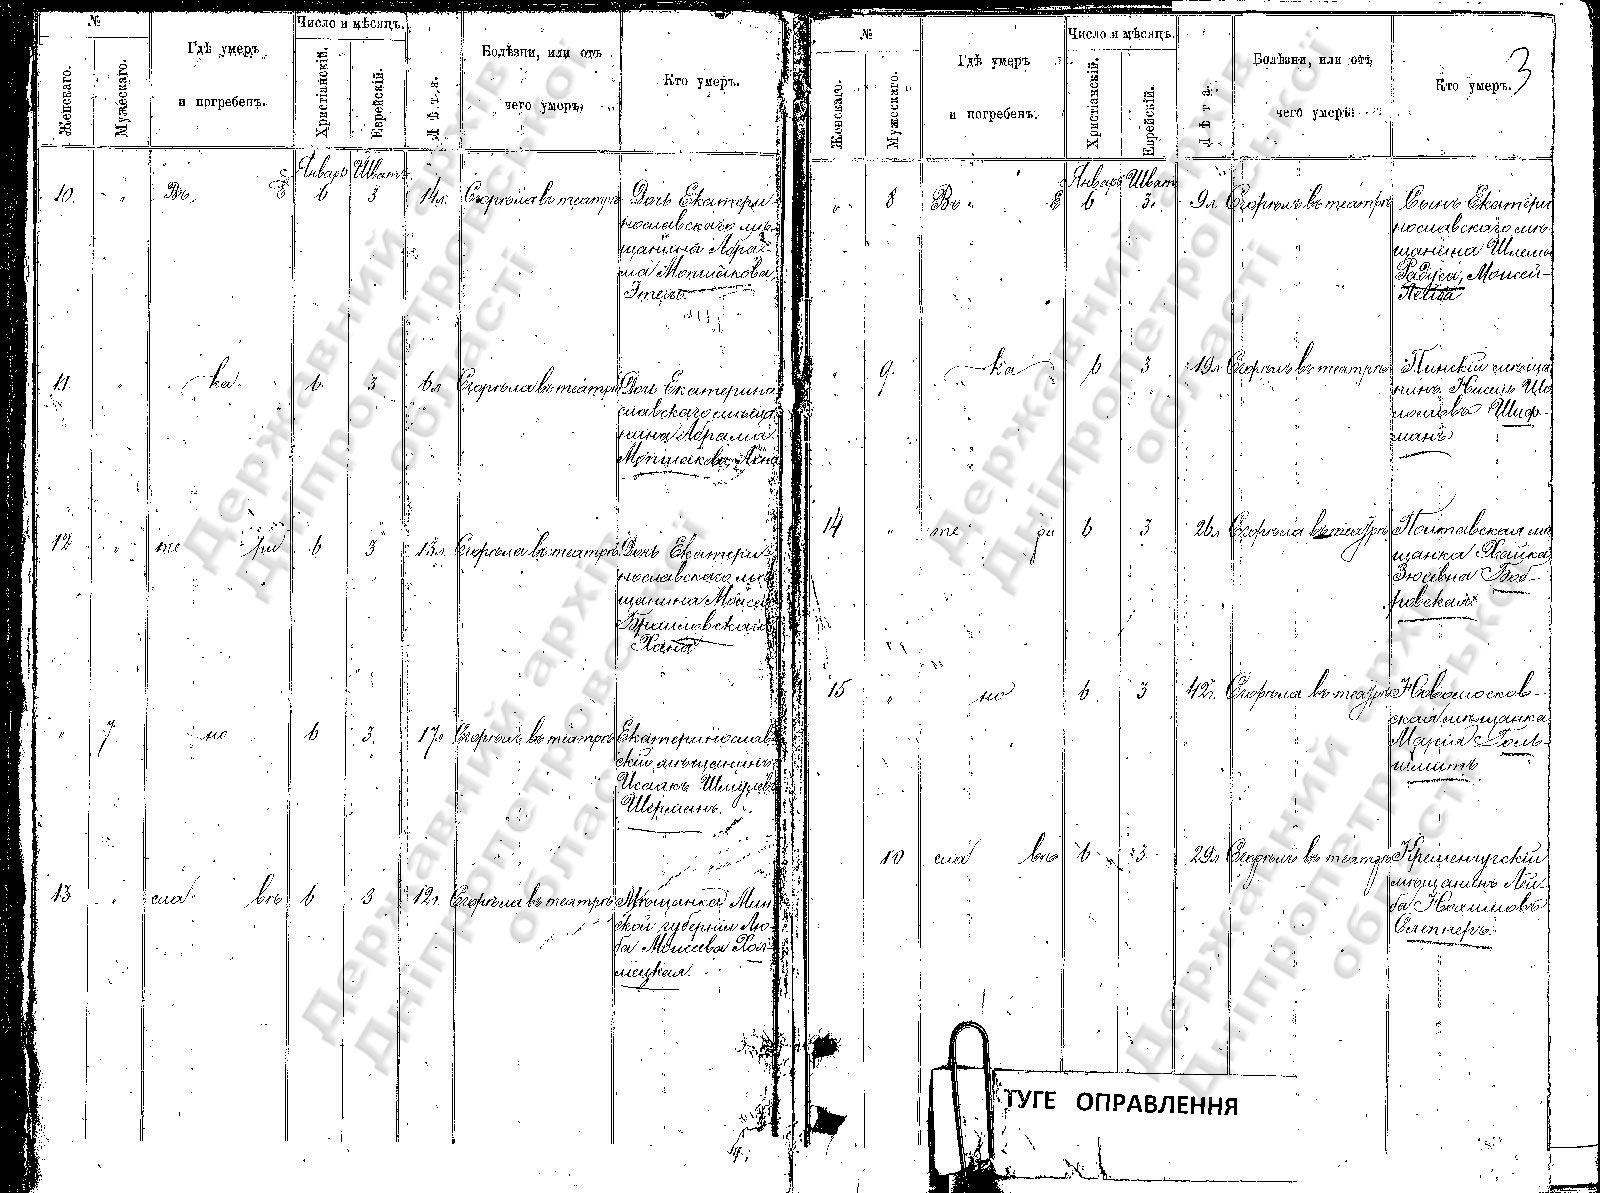 №
Женскаго.
Мужескаго.
Гдѣ умеръ
и погребенъ.
Число и мѣсяцъ.
Христіанскій.
Еврейскій.
Лѣта.
Болѣзни, или отъ
чего умеръ,
Кто умеръ.
Январь Шватъ
10. " Въ Е 6 3 14 л. Сгорѣла въ театрѣ Дочь Екатери
нославскаго мѣ
щанина Абра
ма
Этель
11. " ка 6 3 6 л. Сгорѣла въ театрѣ Дочь Екатерино
славскаго мѣща
нина Абрама
12 " те ри 6 3 13 л. Сгорѣла въ театрѣ Дочь Екатери
нославскаго мѣ
щанина Мойсея
Хана
" 7 но 6 3. 17 л Сгорѣлъ въ театрѣ Екатеринослав
скій мѣщанинъ
Исаакъ Шмулевъ
Шерманъ.
13 " сла вѣ 6 3 12 л. Сгорѣла въ театрѣ Мѣщанка Мин
ской губерніи Лю
ба Моисеева Хол
мецкая.
№
Женскаго.
Мужескаго.
Гдѣ умеръ
и погребенъ.
Число и мѣсяцъ.
Христіанскій.
Еврейскій.
Лѣта.
Болѣзни, или отъ
чего умеръ.
Кто умеръ.
3
Январь Шватъ
" 8 Въ " Е 6 3. 9 л Сгорѣлъ въ театрѣ Сынъ Екатери
нославскаго мѣ
щанина Шлема
Радуса, Моисей-
Лейба
" 9 ка 6 3 19 л Сгорѣлъ въ театрѣ Пинскій мѣща
нинъ
Шиф-
манъ
14 " те ри 6 3 26 л Сгорѣла въ театрѣ Полтавская мѣ
щанка Хайка
Зюсевна Боб-
ровская
15 " но 6 3 42 л. Сгорѣла въ театрѣ Новомосков-
ская мѣщанка
Марія Голь-
шмитъ
10 сла вѣ 6 3 29 л Сгорѣлъ въ театрѣ Кременчугскій
мѣщанинъ Лей-
ба Нохимовъ
Слепнеръ.
ТУГЕ ОПРАВЛЕННЯ
Державний архів
Дніпропетровської
області